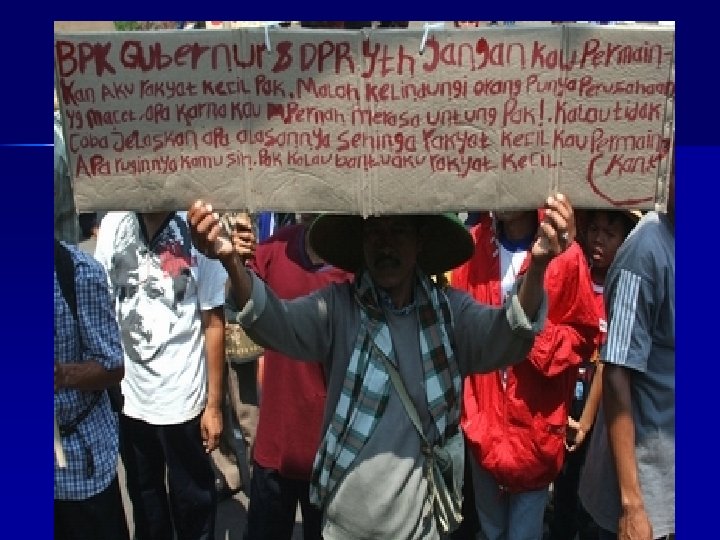 BPK GUberNUr & DPR Yth Jangan Kau Permain-
Kan AKU rakyat Kecil Pak. Malah Kelindungi orang Punya Perusahaan
Yg Macet, apa Karna Kau Pernah Merasa untung Pak!. Kalau tidak
Coba Jelaskan apa alasannya Sehinga rakyat Kecil Kau Permain
APa ruginnya Kamu Sih. Pak Kalau bantu aku rakyat Kecil. (Kan